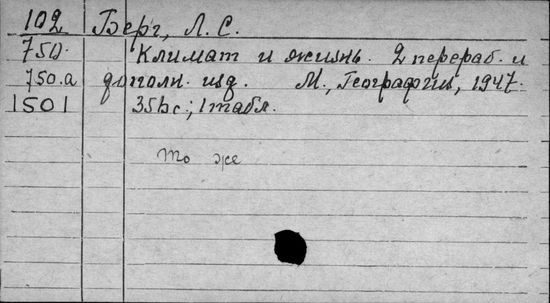 102 Берг, Л. С.
750. Климат и жизнь. 2 перераб. и
750.а дополн. изд. М., Географгиз, 1947.
1501 351 с.; 1 табл.
То же